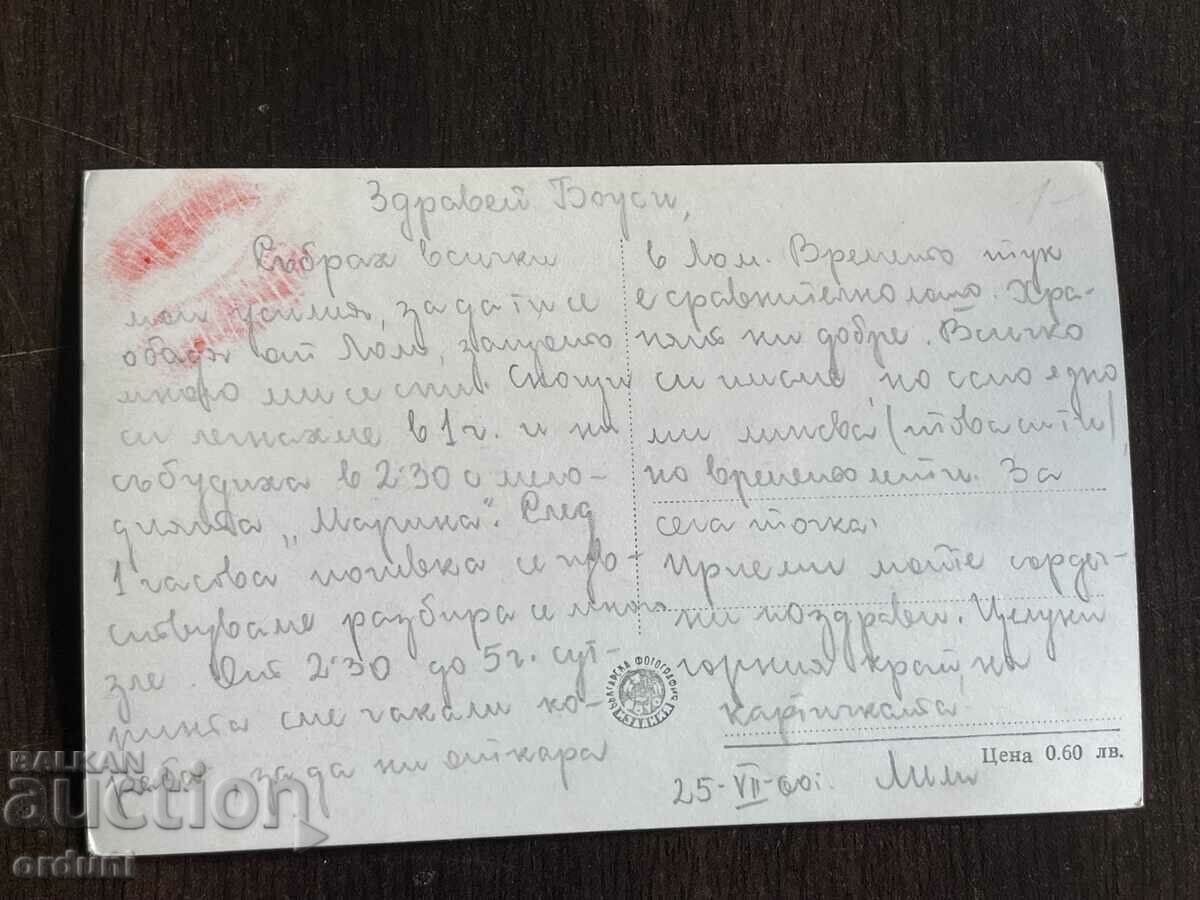 Здравей Боуси,
Събрах всички
мои усилия, за да ти се
обадя от Лом, защото
много ми се спи. Снощи
си легнахме в 1 г. и ни
събудиха в 2:30 с мело-
дията "Марина". След
1 часова почивка се чув-
ствуваме разбира се много
зле. От 2:30 до 5 г. сут-
ринта сме чакали ко-
раба за да ни откара
в Лом. Времето тук
е сравнително лошо. Хра-
ната ни добре. Всичко
си имаме, но само едно
ми липсва (това си ти),
но времето лети. За
сега точка.
Приеми моите сърдеч-
ни поздрави. Целуни
горния край на
картичката.
25-VII-60г. Лили
1-
БЪЛГАРСКА ФОТОГРАФИЯ
Цена 0.60 лв.
BALKAN
auction
orduni